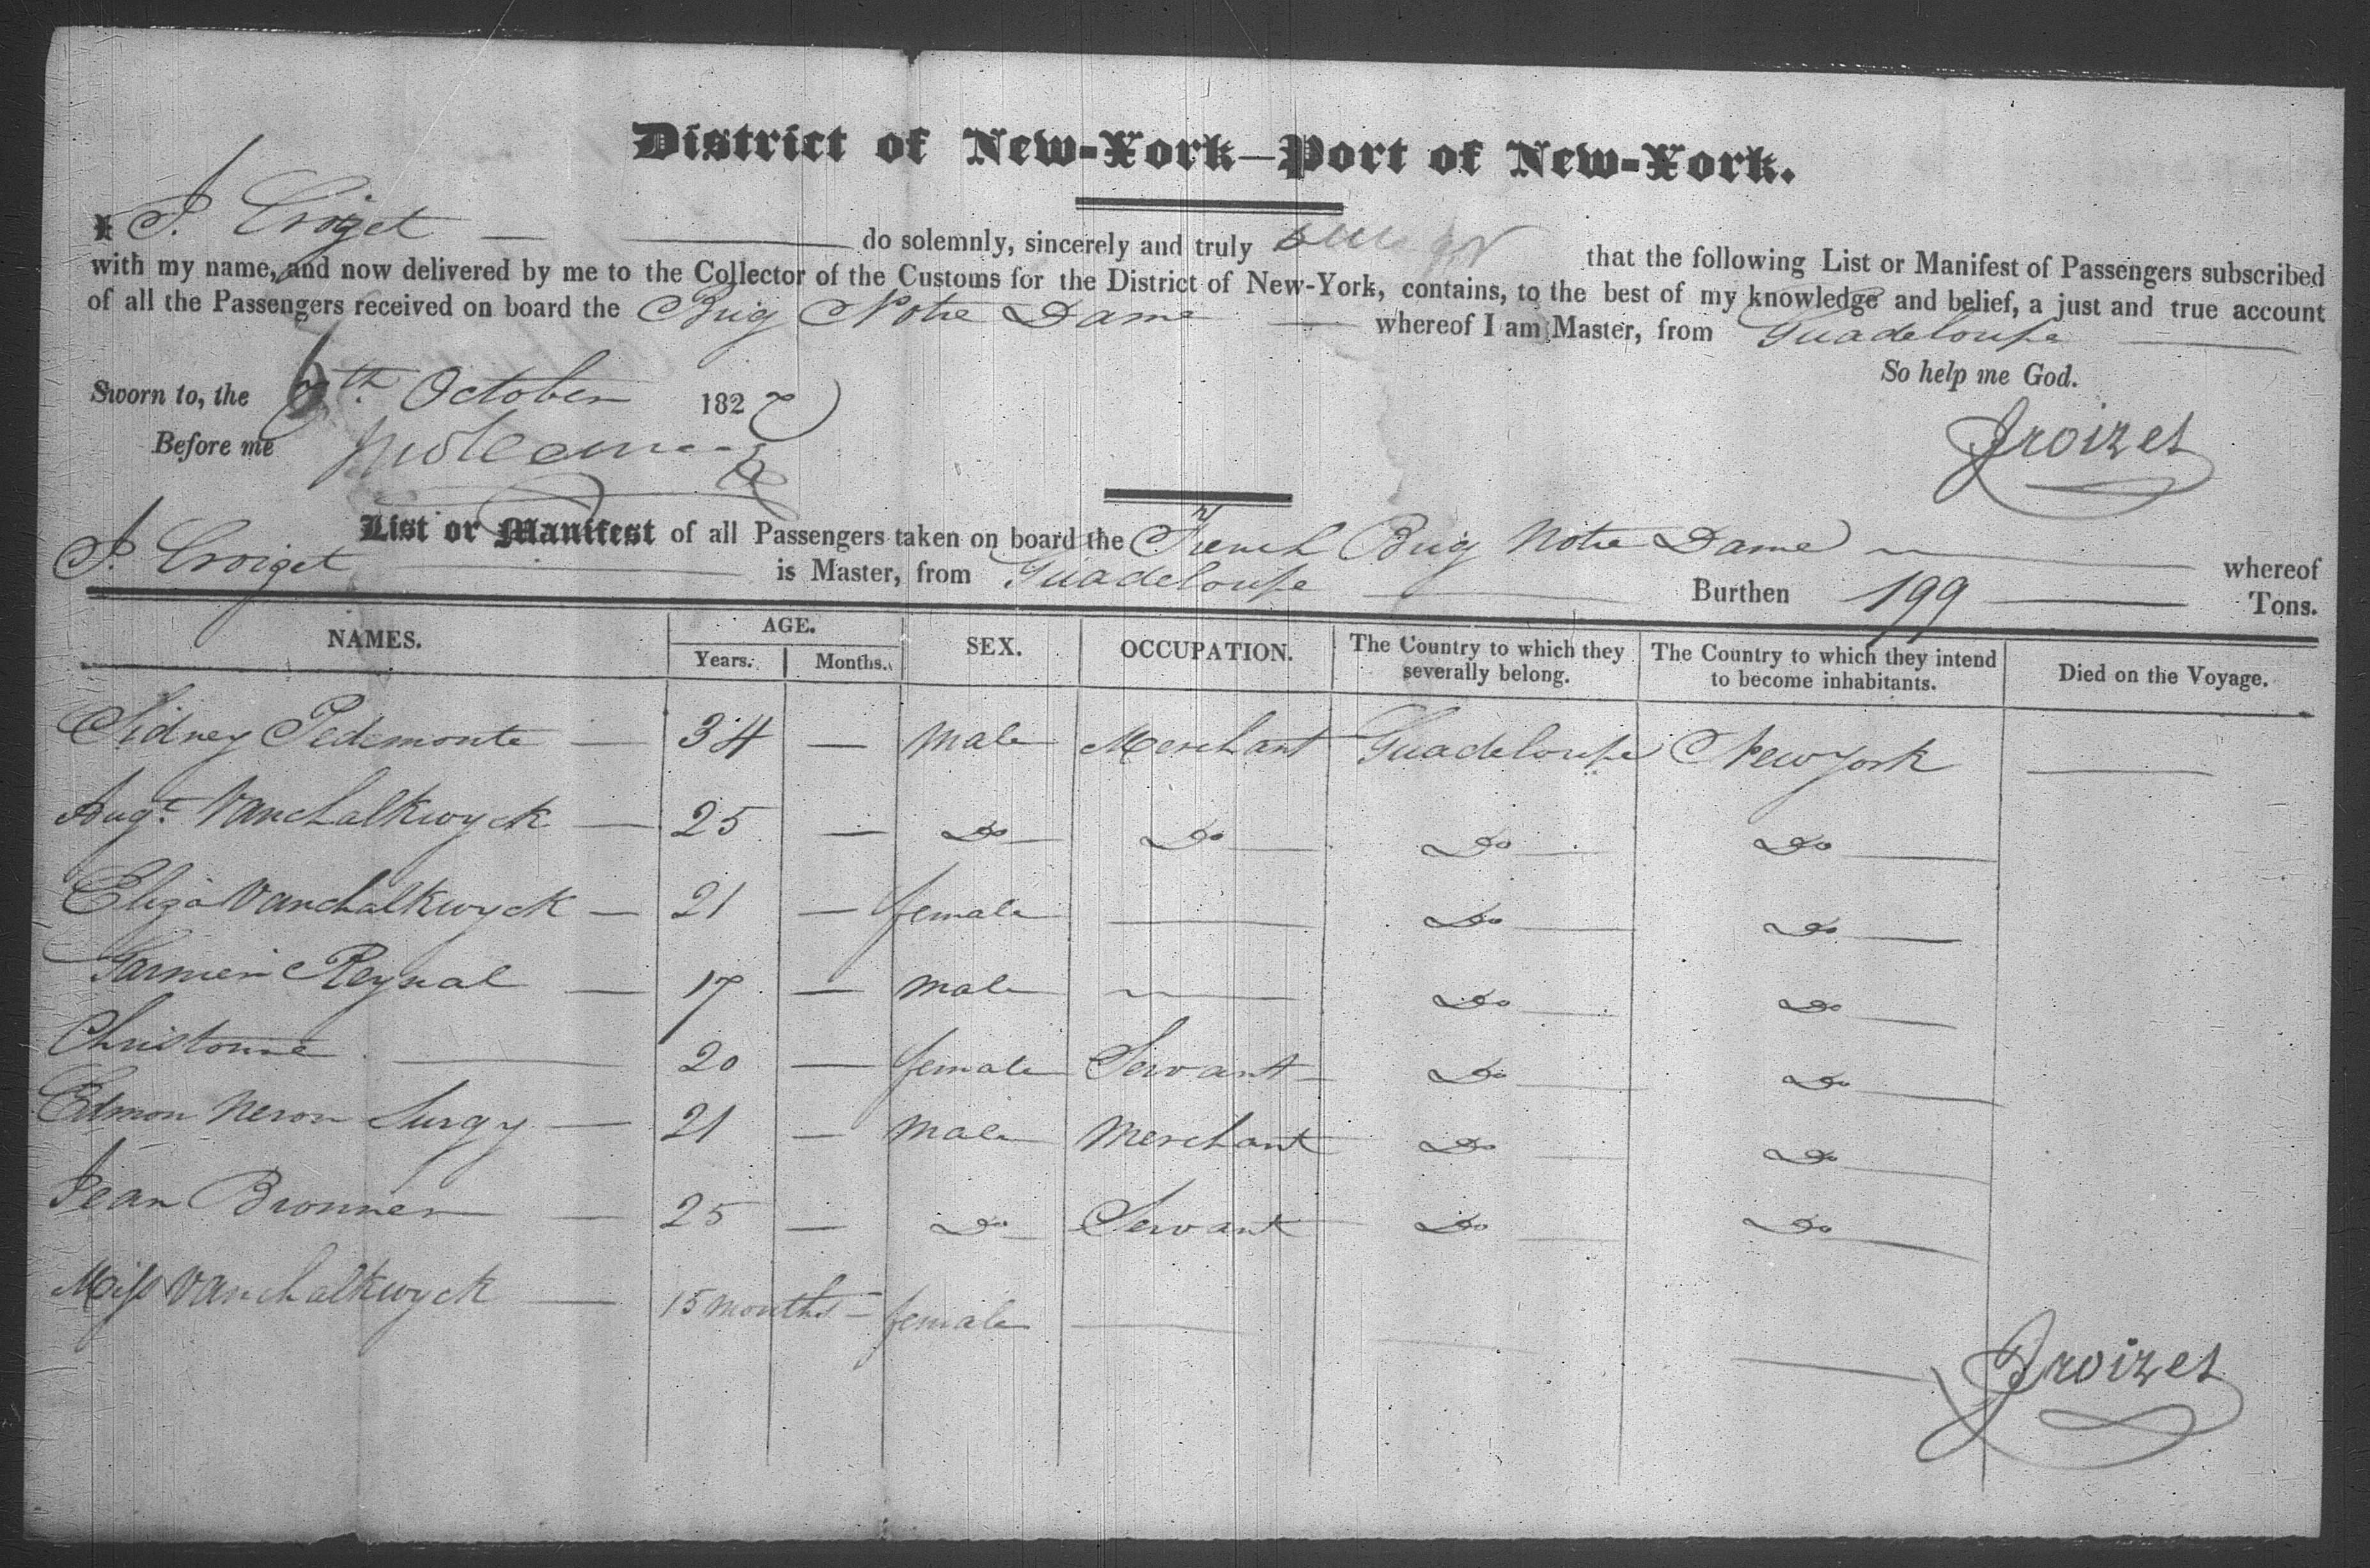 District of New-York—Port of New-York.
I, P. Croizet do solemnly, sincerely and truly that the following List or Manifest of Passengers subscribed
with my name, and now delivered by me to the Collector of the Customs for the District of New-York, contains, to the best of my knowledge and belief, a just and true account
of all the Passengers received on board the Brig Notre Dame whereof I am Master, from Guadeloupe
So help me God.
Sworn to, the 6th October 1827
Before me
Croizet
List or Manifest of all Passengers taken on board the French Brig Notre Dame whereof
P. Croizet is Master, from Guadeloupe Burthen 199 Tons.
NAMES. AGE. Years. Months. SEX. OCCUPATION. The Country to which they severally belong. The Country to which they intend to become inhabitants. Died on the Voyage.
Sidney Pedemonte — 34 — Male Merchant Guadeloupe New York —
Augt. Vanchalkwyck — 25 — Do Do Do Do
Eliza Vanchalkwyck — 21 — female — Do Do
Reynal — 17 — Male — Do Do
Christonne — 20 — female Servant Do Do
Edmon Neron Surgy — 21 — Male Merchant Do Do
Jean Bronner — 25 — Do Servant Do Do
Miss Vanchalkwyck — 15 months — female —
Croizet